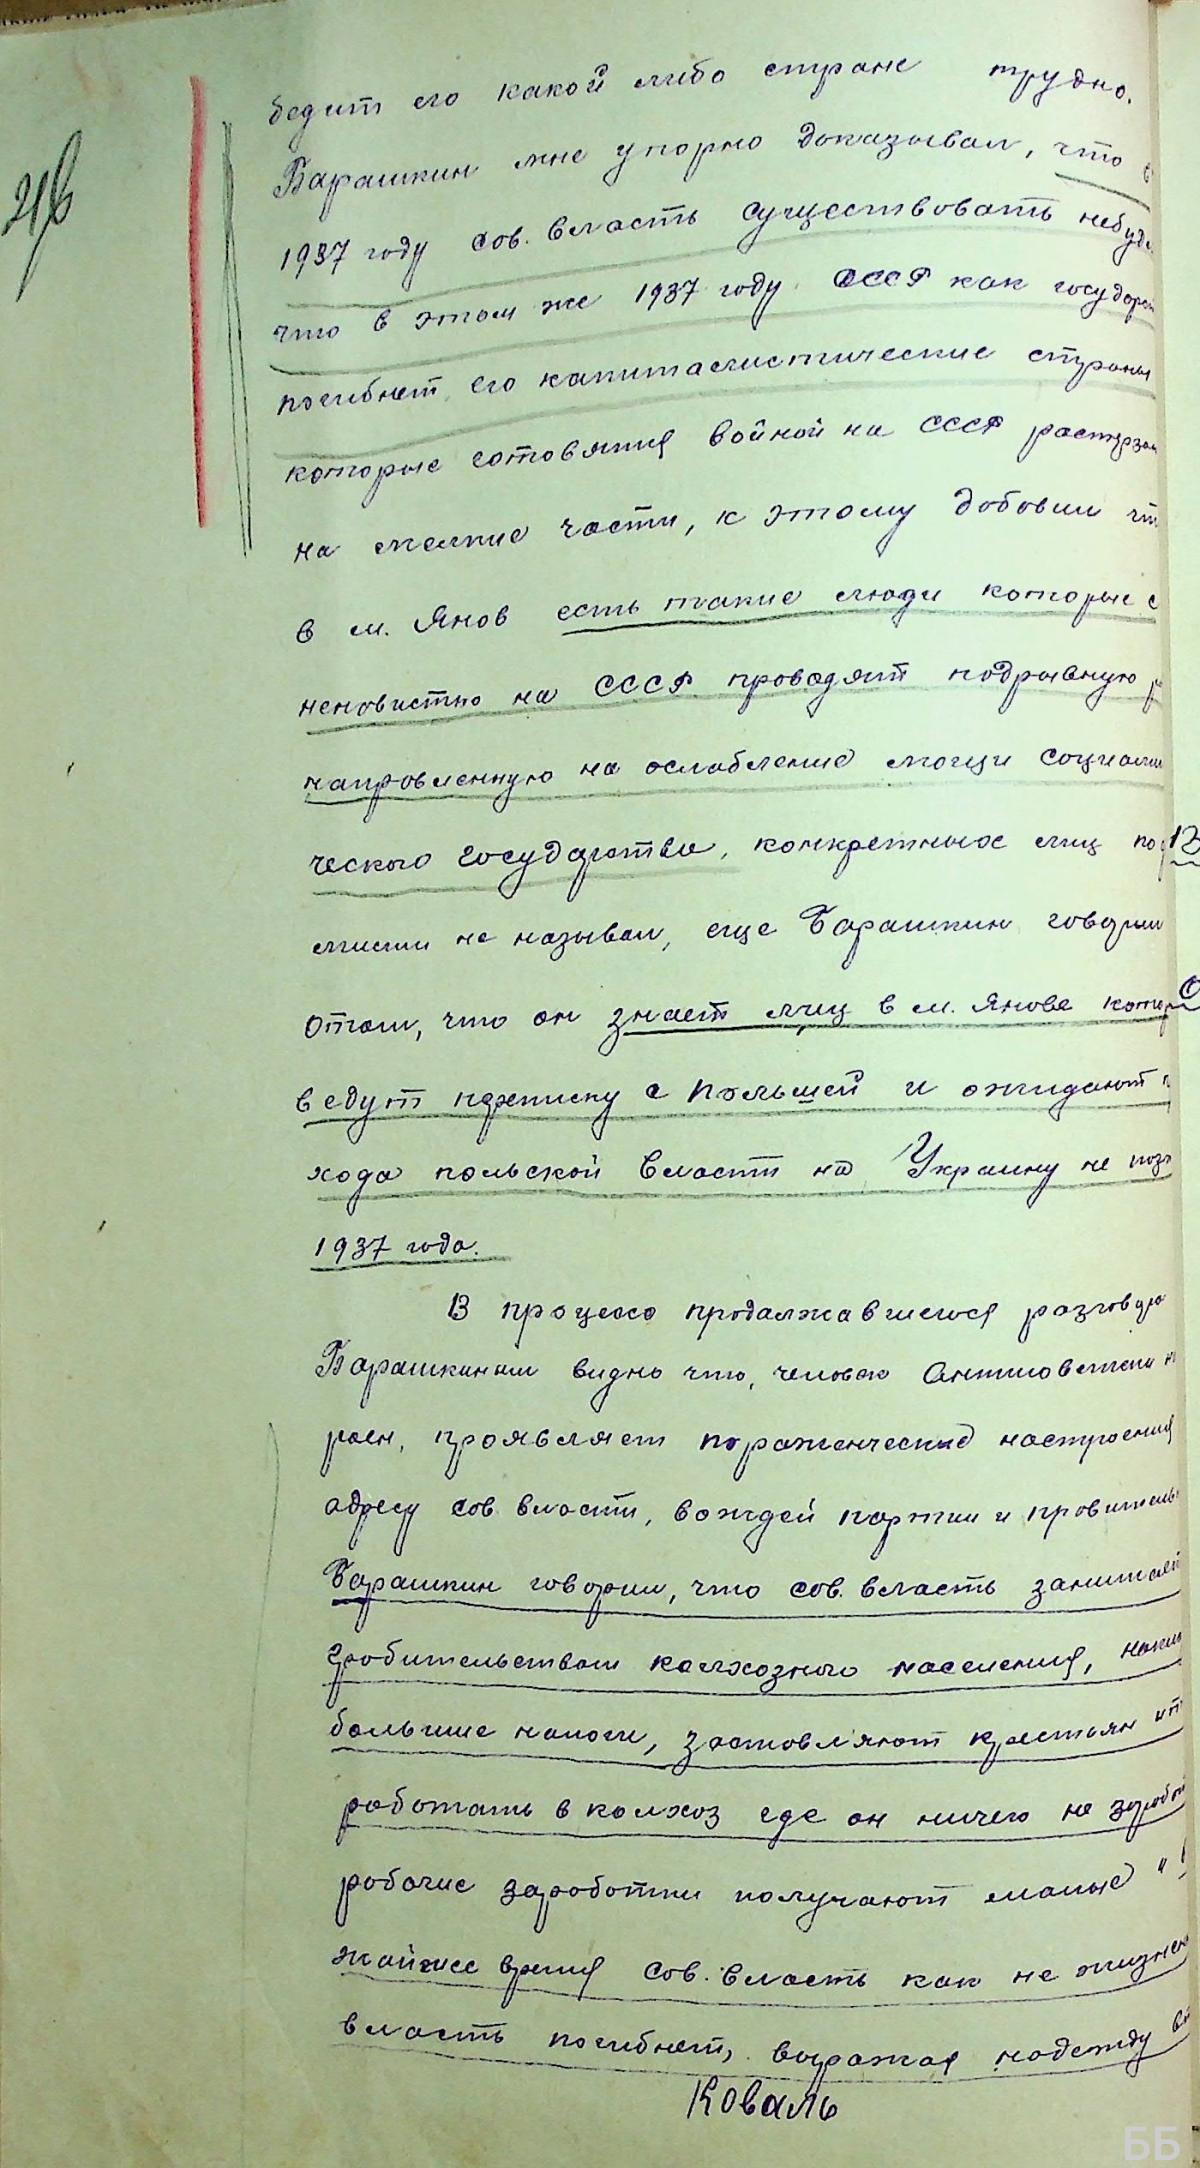 бедит его какой либо стране трудно.
Барашкин мне упорно доказывал, что в
1937 году сов. власть существовать небуде
что в этом же 1937 году СССР как государст
погибнет его капиталистические страны
которые готовятся войной на СССР растерзают
на мелкие части, к этому добовил чт
в м. Янов есть такие люди которые с
неновистью на СССР проводят подрывную р
напровленную на ослабление мощи социали
ческого государства, конкретных лиц по
милии не называл, еще Барашкин говорил
отом, что он знает лиц в м. Янове котор
ведут переписку с Польшей и ожидают п
хода польской власти на Украину не позж
1937 года.
В процессе продолжавшегося разговора
Барашкиным видно что, человек антисоветски н
роен, проявляет пораженческие настроения
адресу сов власти, вождей партии и провитель
Барашкин говорил, что сов. власть занимает
гробительством колхозного населения, накла
большие налоги, заставляют крестьян ит
работать в колхоз где он ничего не зарабо
рабочие заработки получают малые "
жайшее время сов. власть как не жизнен
власть погибнет, выражая надежду в
Коваль
ББ